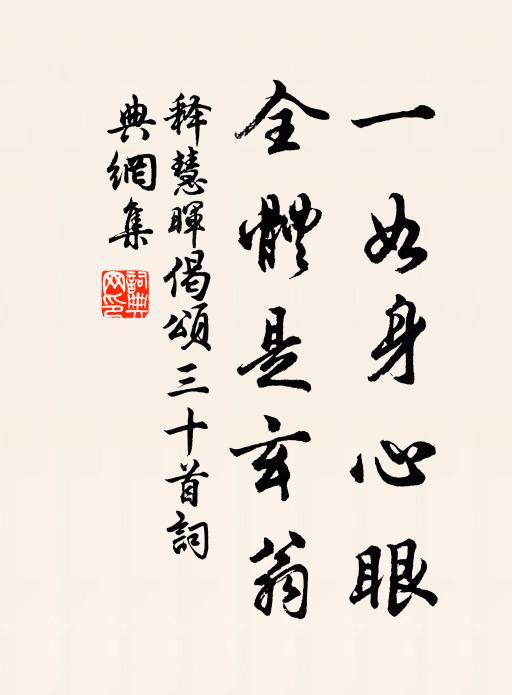 一如身心眼
全體是玄翁
釋慧暉偈頌三十首詞
典網集
詞典網印